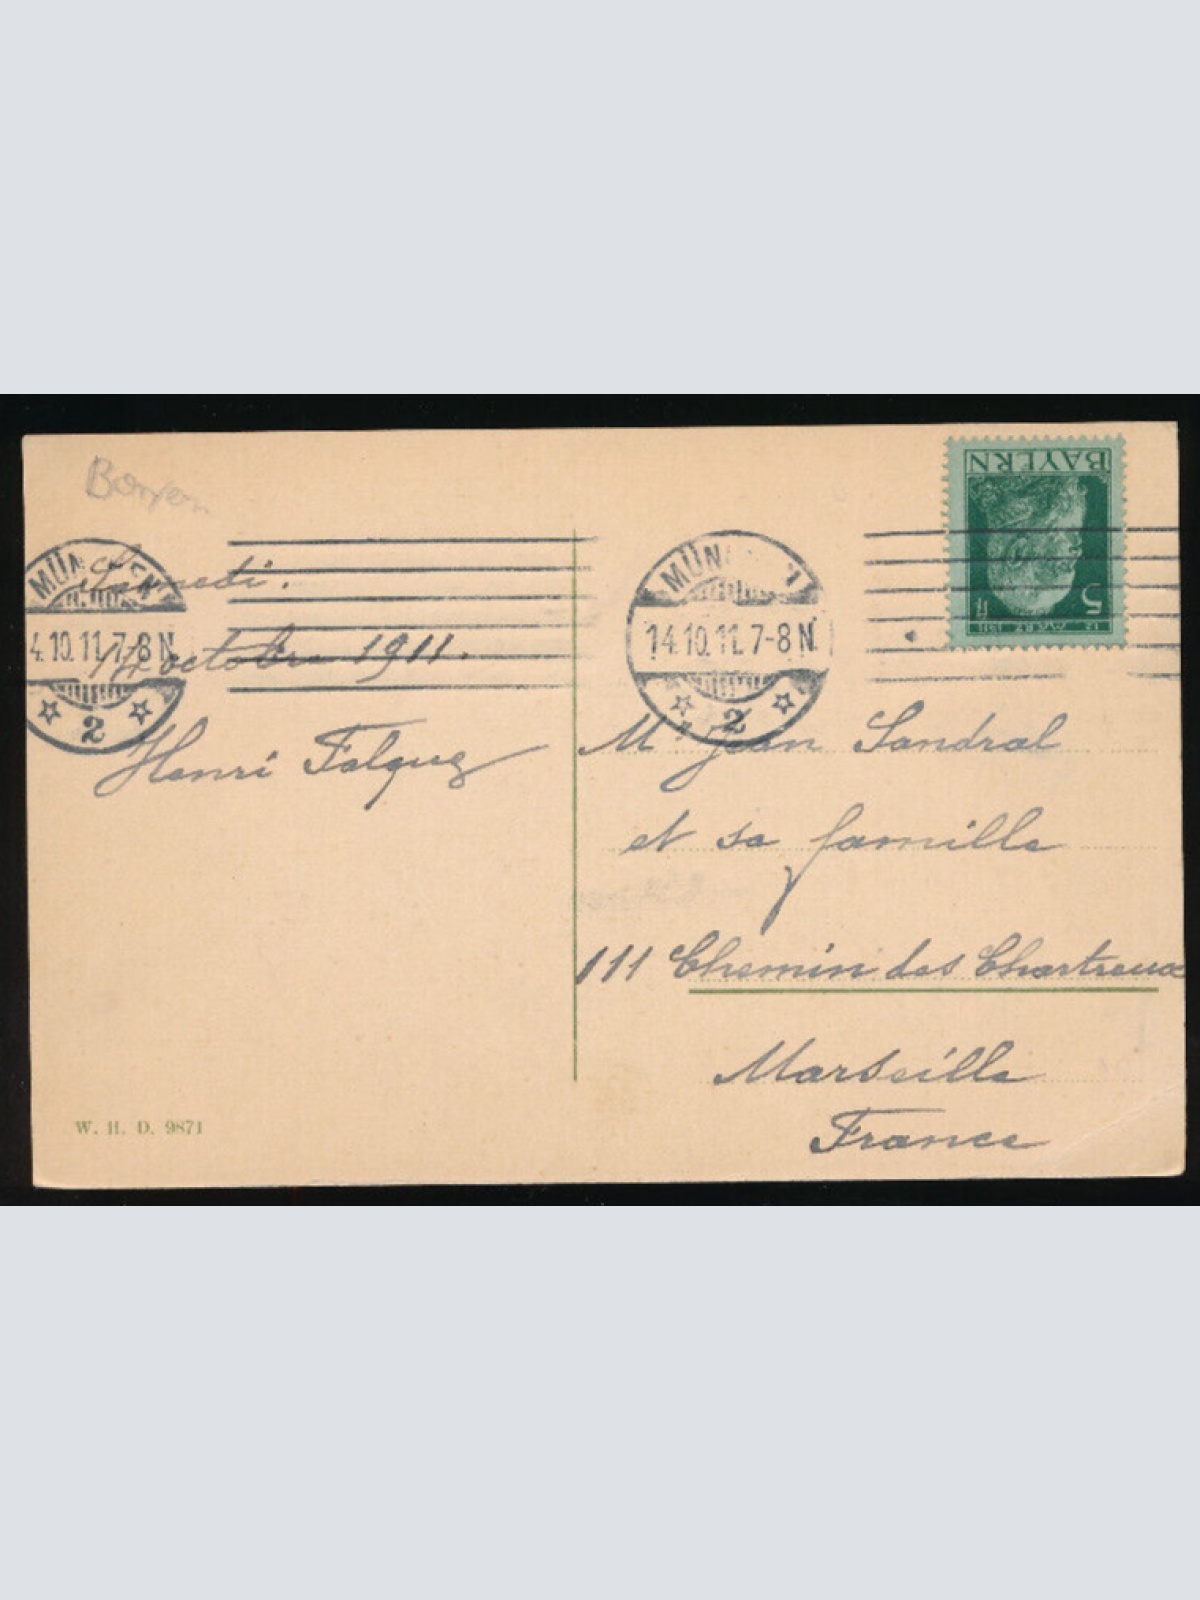 Bayern
MÜNCHEN
14.10.11.7-8N.
2
Samedi.
14 octobre 1911.
Henri Falque
MÜN
14.10.11.7-8N.
2
BAYERN
5
12. MÄRZ 1911
Mr Jean Sandral
et sa famille
111 Chemin des Chartreux
Marseille
France
W. H. D. 9871